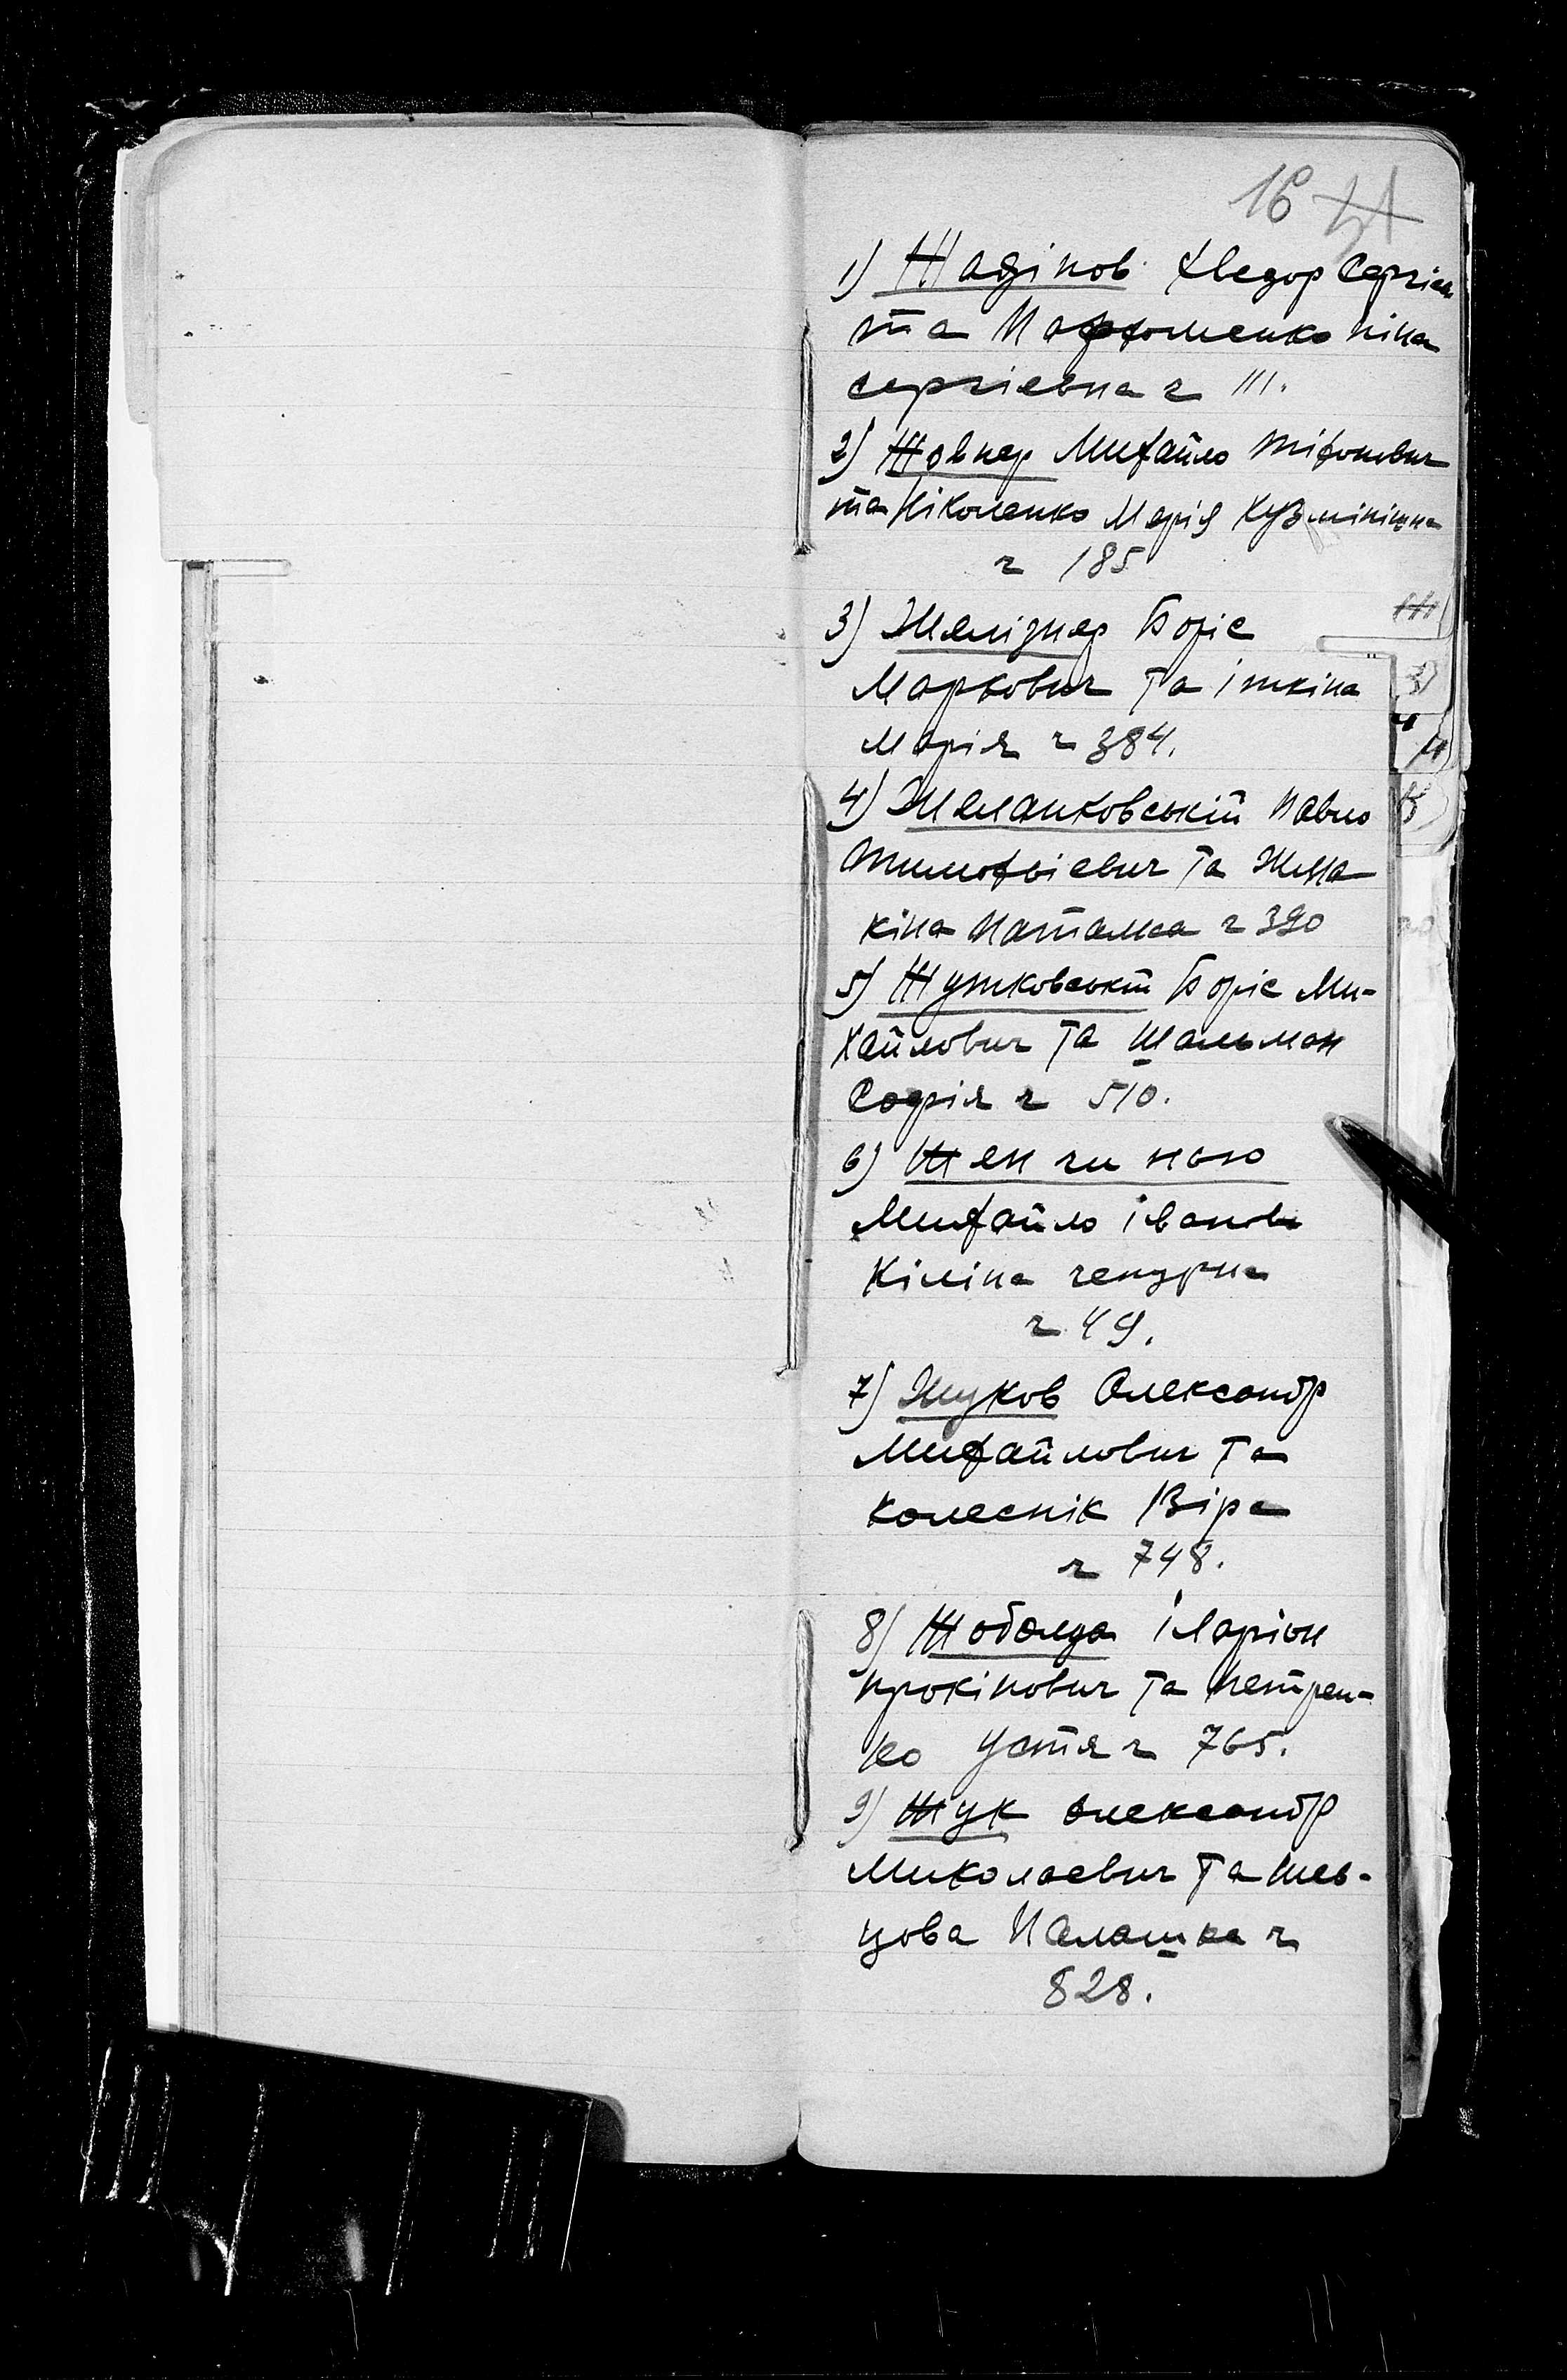 16
1) Жадінов Хведор Сергієв
та Пархоменко Ніна
Сергієвна ч 111.
2) Жовнер Михайло Тіхонович
та Ніколенко Марія Кузьмінішна
ч 185
3) Желізняр Боріс
Маркович та Іткіна
Марія ч 384.
4) Желанковській Павло
Тимофвієвич та Жида
кіна Наталка ч 390
5) Жутковській Боріс Ми-
хайлович та Шальман
Софія ч 510.
6) Женчило
Михайло Іванов
Кіліна Чепурна
ч 49.
7) Жуков Олександр
Михайлович та
Колеснік Віра
ч 748.
8) Жоболда Іларіон
Прокіпович та Петрен-
ко Устя ч 765.
9) Жук Олександр
Миколаєвич та Шев-
цова Палашка ч
828.
Ж
З
И
К